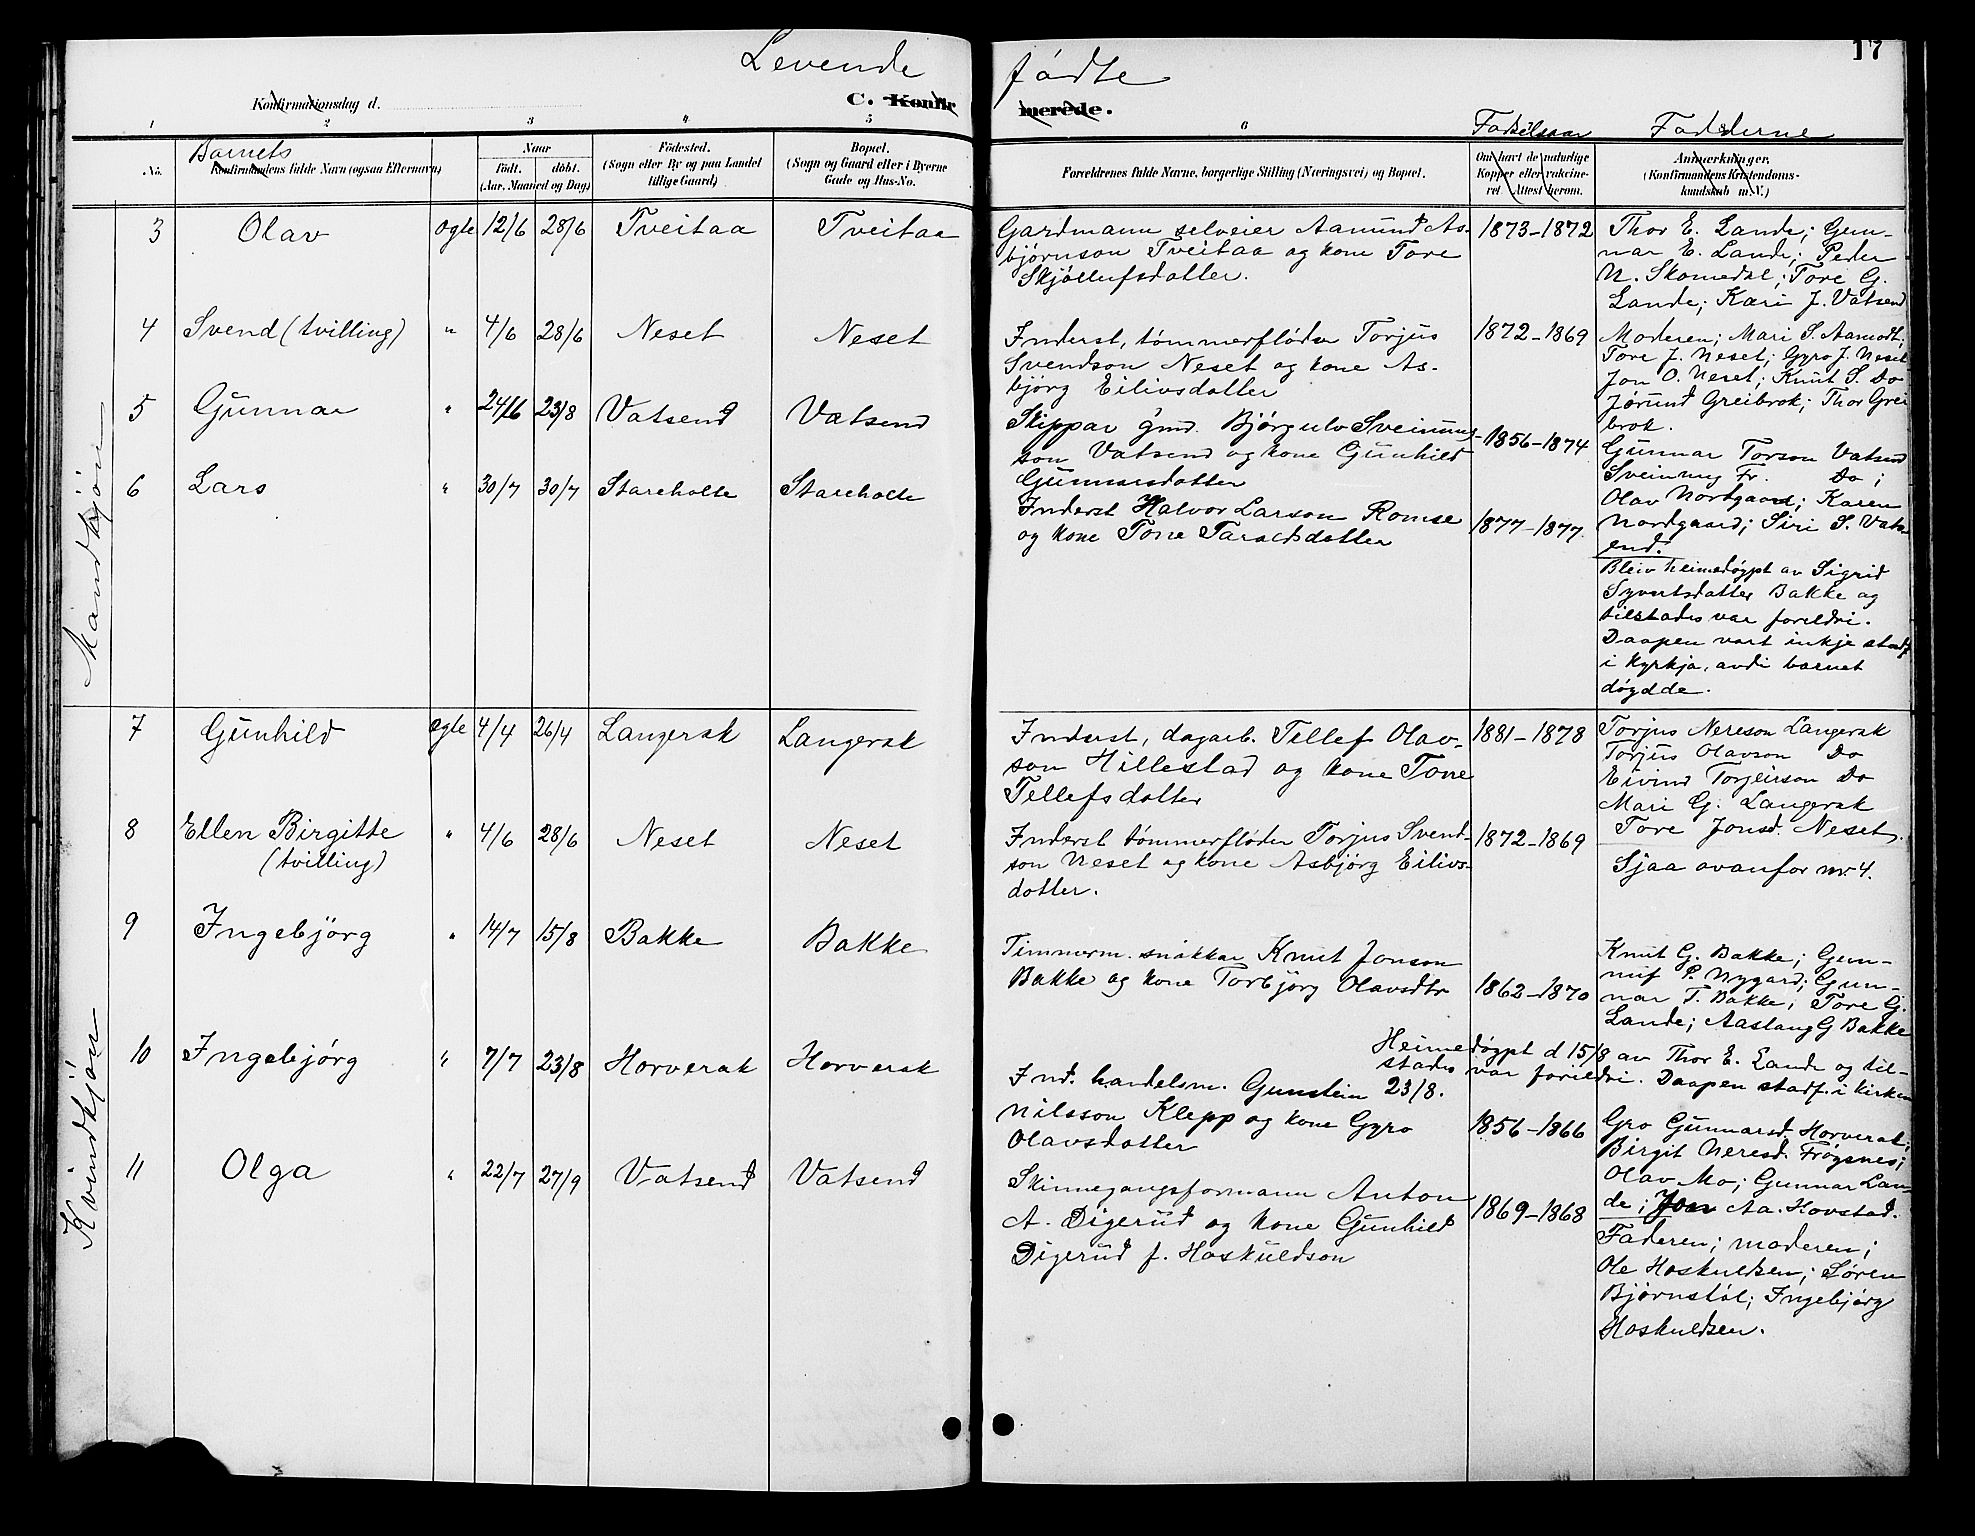 17
Levende fødte
Konfirmationsdag d.
C. Konfirmerede.
1 2 3 4 5 6 Fødselsaar Fadderne
No.
Barnets
Konfirmandens fulde Navn (ogsaa Efternavn)
Naar
født. døbt.
(Aar, Maaned og Dag)
Fødested.
(Sogn eller By og paa Landet
tillige Gaard)
Bopæl.
(Sogn og Gaard eller i Byerne
Gade og Hus-No.
Forældrenes fulde Navne, borgerlige Stilling (Næringsvei) og Bopæl.
Om havt de naturlige
Kopper eller vakcine-
ret. Attest herom.
Anmærkninger.
(Konfirmandens Kristendoms-
kundskab m. V.)
Mandkjön
3 Olav ogte 12/6 28/6 Tveitaa Tveitaa
Gardmann selveier Aamund As-
bjørnson Tveitaa og kone Tore
Skjøllufsdatter.
1873-1872
Thor E. Lande; Gun-
nar E. Lande; Peder
N. Skomedal; Tore G.
Lande; Kari J. Vatsend
4 Svend (tvilling) " 4/6 28/6 Neset Neset
Inderst, tømmerfløder Torjus
Svendson Neset og kone As-
bjørg Eilivsdatter
1872-1869
Moderen; Mari S. Aamodt;
Tore J. Neset; Gyro J. Neset
Jon O. Neset; Knut S. Do
Jørund Greibrok; Thor Grei
brok.
5 Gunnar " 24/6 23/8 Vatsend Vatsend
Skippar gmd. Bjørgulv Sveinung-
son Vatsend og kone Gunhild
Gunnarsdatter
1856-1874
Gunnar Torson Vatsend
Sveinung Fr. Do;
Olav Nordgaard; Karen
Nordgaard; Siri S. Vats-
end.
6 Lars " 30/7 30/7 Stareholte Stareholte
Inderst Halvor Larson Romse
og kone Tone Taraldsdatter
1877-1877.
Bleiv heimedøypt av Sigrid
Syvertsdatter Bakke og
tilstades var foreldri.
Daapen vart inkje stadf.
i kyrkja, avdi barnet
døydde.
Kvindkjön
7 Gunhild ogte 4/4 26/4 Langerak Langerak
Inderst, dagarb. Tellef Olav-
son Hillestad og kone Tone
Tellefsdatter
1881-1878
Torjus Nereson Langerak
Torjus Olavson Do
Eivind Torjeirson Do
Mari G. Langerak
Tore Jonsd. Neset.
8 Ellen Birgitte " 4/6 28/6 Neset Neset
(tvilling)
Inderst tømmerfløder Torjus Svend-
son Neset og kone Asbjørg Eilivs-
datter.
1872-1869
Sjaa ovanfor nr. 4.
9 Ingebjörg " 14/7 15/8 Bakke Bakke
Timmerm. snikkar Knut Jonson
Bakke og kone Torbjörg Olavsdtr
1862-1870
Knut G. Bakke; Gun-
nuf P. Nygard; Gun-
nar T. Bakke; Tore G.
Lande; Aaslaug G Bakke
10 Ingebjörg " 7/7 23/8 Horverak Horverak
Heimedøypt d 15/8 av Thor E. Lande og til-
stades var foreldri. Daapen stadf. i kirken
23/8.
Ind. handelsm. Gunstein
Nilsson Klepp og kone Gyro
Olavsdatter
1856-1866
Gro Gunnarsd. Horverak;
Birgit Neresd. Frøysnes;
Olav Mo; Gunnar Lan-
de; Jon Aa. Hovstad.
11 Olga " 22/7 27/9 Vatsend Vatsend
Skinnegangsformann Anton
A. Digerud og kone Gunhild
Digerud f. Hoskuldson
1869-1868
Faderen; moderen;
Ole Hoskuldsen; Søren
Bjørnstøl; Ingebjörg
Hoskuldsen.